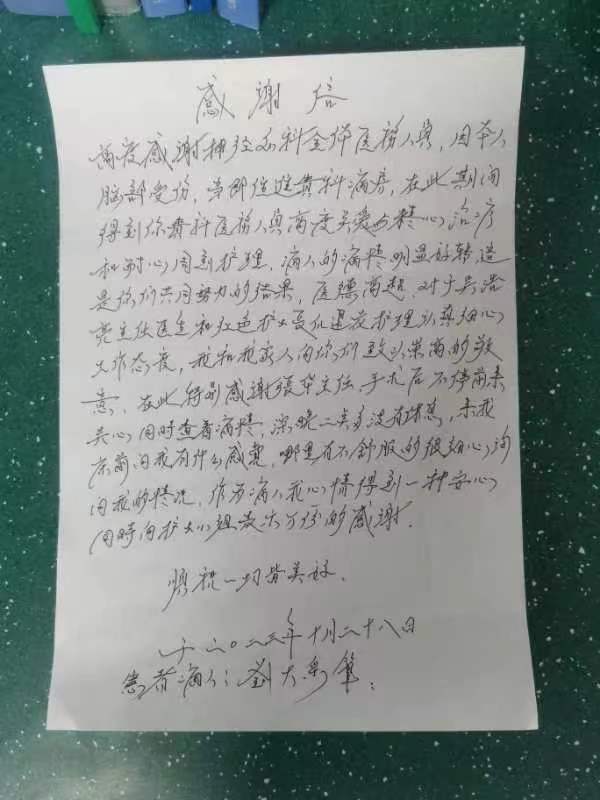 感谢信
高度感谢神经外科全体医务人员，因本人
脑部受伤，当即住进贵科病房，在此期间
得到你贵科医务人员高度关爱与精心治疗
和耐心周到护理，病人的病情明显好转，这
是你们共同努力的结果，医德高超，对于吴浩
主任医生和护理认真细心
工作态度，我和我家人向你们致以崇高的敬
意，在此特别感谢张华主任，手术后不停前来
关心，同时查看病情，深晚二点多没有休息，来我
床前问我有什么感觉，哪里有不舒服的很细心询
问我的情况，作为病人我心情得到一种安心
同时向护士小组最大万分的感谢.
祝一切皆美好.
于二〇二三年十月二十八日
患者病人：劉大